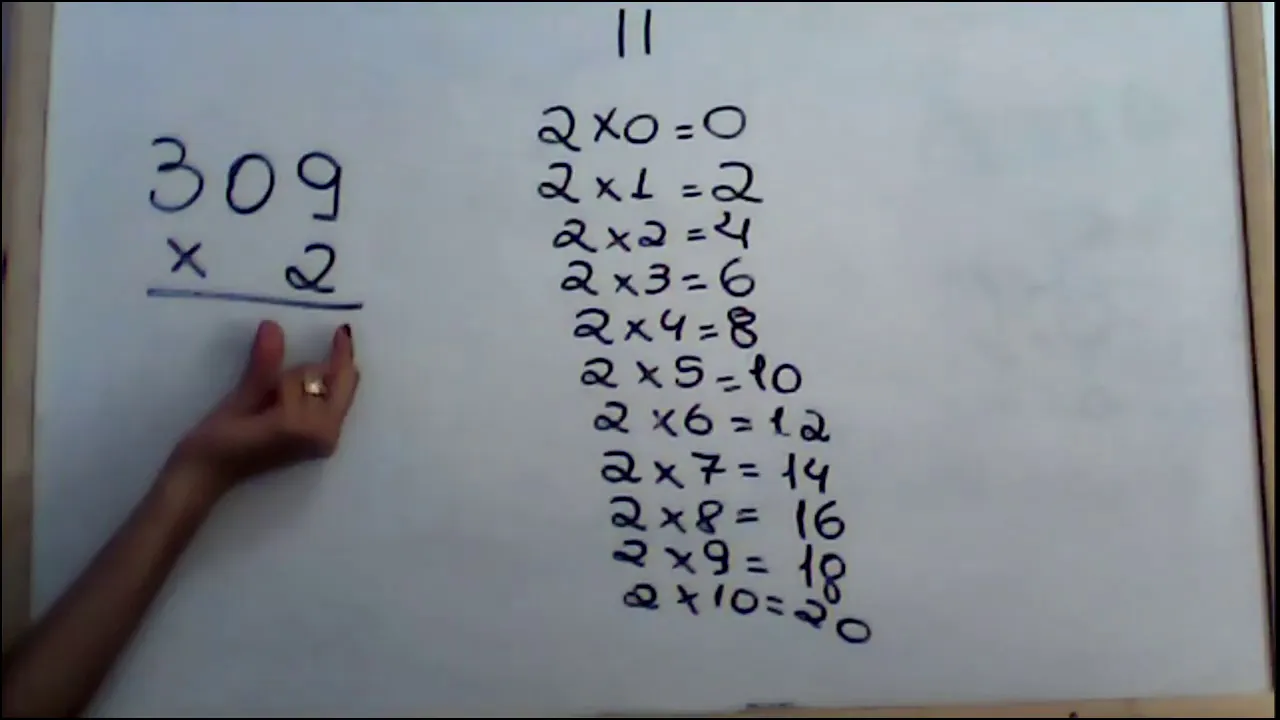 11
309
× 2
2×0=0
2×1=2
2×2=4
2×3=6
2×4=8
2×5=10
2×6=12
2×7=14
2×8=16
2×9=18
2×10=20